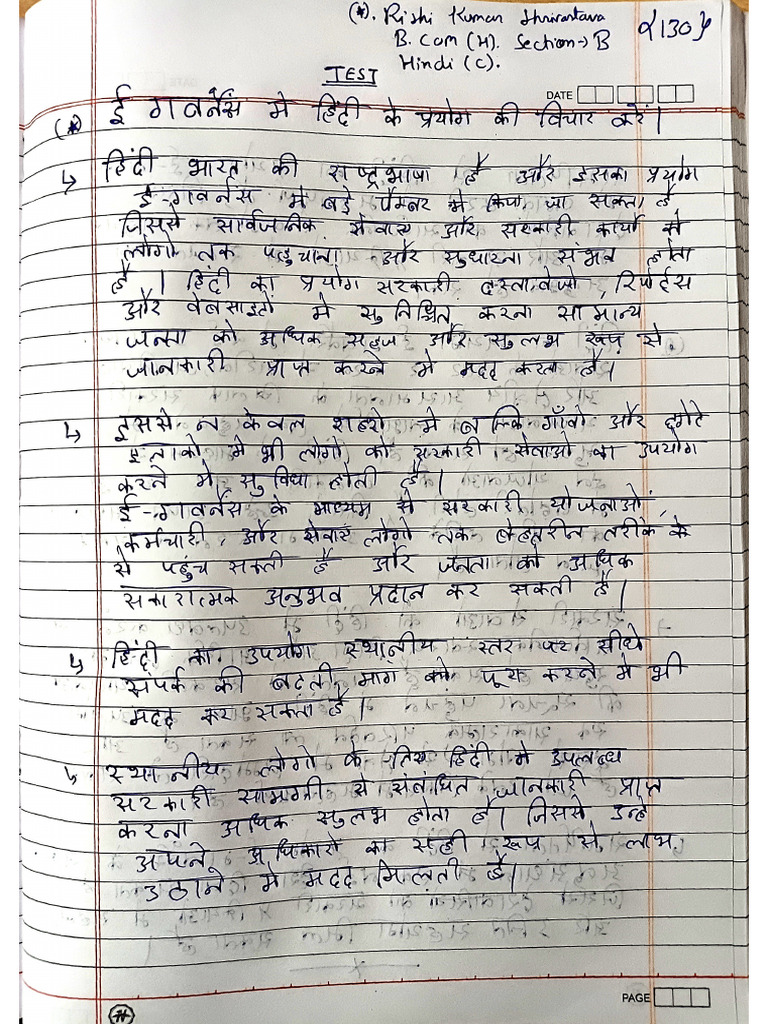 (*). Rishi Kumar Shrivastava
B. Com (H). Section → B
Hindi (C).
TEST
DATE
(*) ई गवर्नेंस में हिंदी के प्रयोग की विचार करें।
↳ हिंदी भारत की राष्ट्रभाषा है और इसका प्रयोग
ई-गवर्नेंस में बड़े पैमबर में किया जा सकता है
जिससे सार्वजनिक सेवाएं और सरकारी कार्यों को
लोगों तक पहुचाना और सुधारना संभव होता
है। हिंदी का प्रयोग सरकारी दस्तावेजों, रिपोर्ट्स
और वेबसाइटों में सुनिश्चित करना सामान्य
जनता को अधिक सहज और सुलभ रूप से
जानकारी प्राप्त करने में मदद करता है।
↳ इससे न केवल शहरों में बल्कि गाँवों और छोटे
इलाको में भी लोगों को सरकारी सेवाओं का उपयोग
करने में सुविधा होती है।
ई-गवर्नेंस के माध्यम से सरकारी योजनाओं,
कर्मचारी, और सेवाएं लोगों तक बेहतरीन तरीके के
से पहुंच सकती है और जनता को अधिक
सकारात्मक अनुभव प्रदान कर सकती है।
↳ हिंदी का उपयोग स्थानीय स्तर पर सीधे
संपर्क की बढ़ती मांग को पूरा करने में भी
मदद कर सकता है।
↳ स्थानीय लोगों के लिए हिंदी में उपलब्ध
सरकारी सामग्री से संबंधित जानकारी प्राप्त
करना अधिक सुलभ होता है। जिससे उन्हे
अपने अधिकारों का सही रूप से लाभ
उठाने में मदद मिलती है।
PAGE